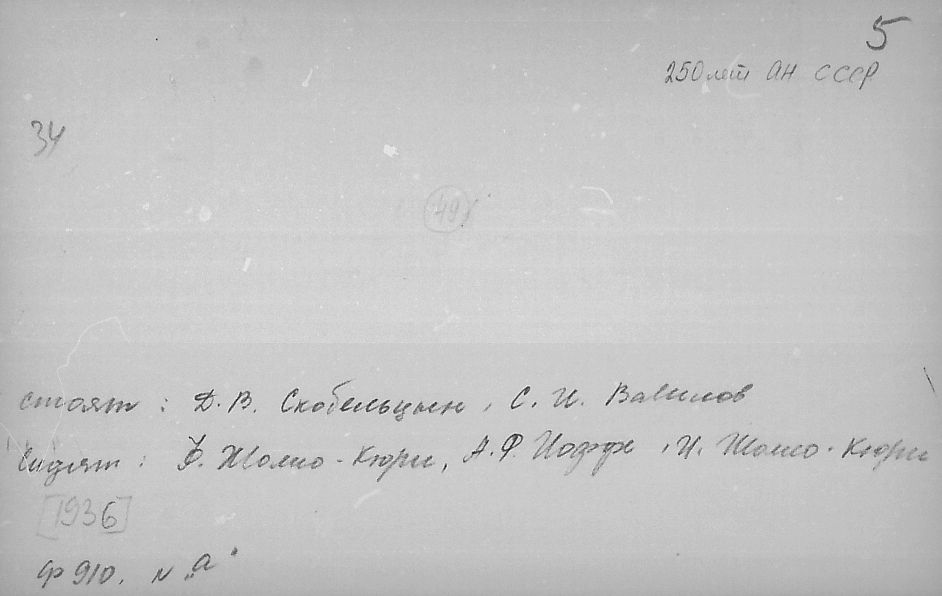 5
250 лет АН СССР
34
49
стоят: Д. В. Скобельцын, С. И. Вавилов
Сидят: Ф. Жолио-Кюри, А. Ф Иоффе, И. Жолио-Кюри
[1936]
Ф 910. N „а"